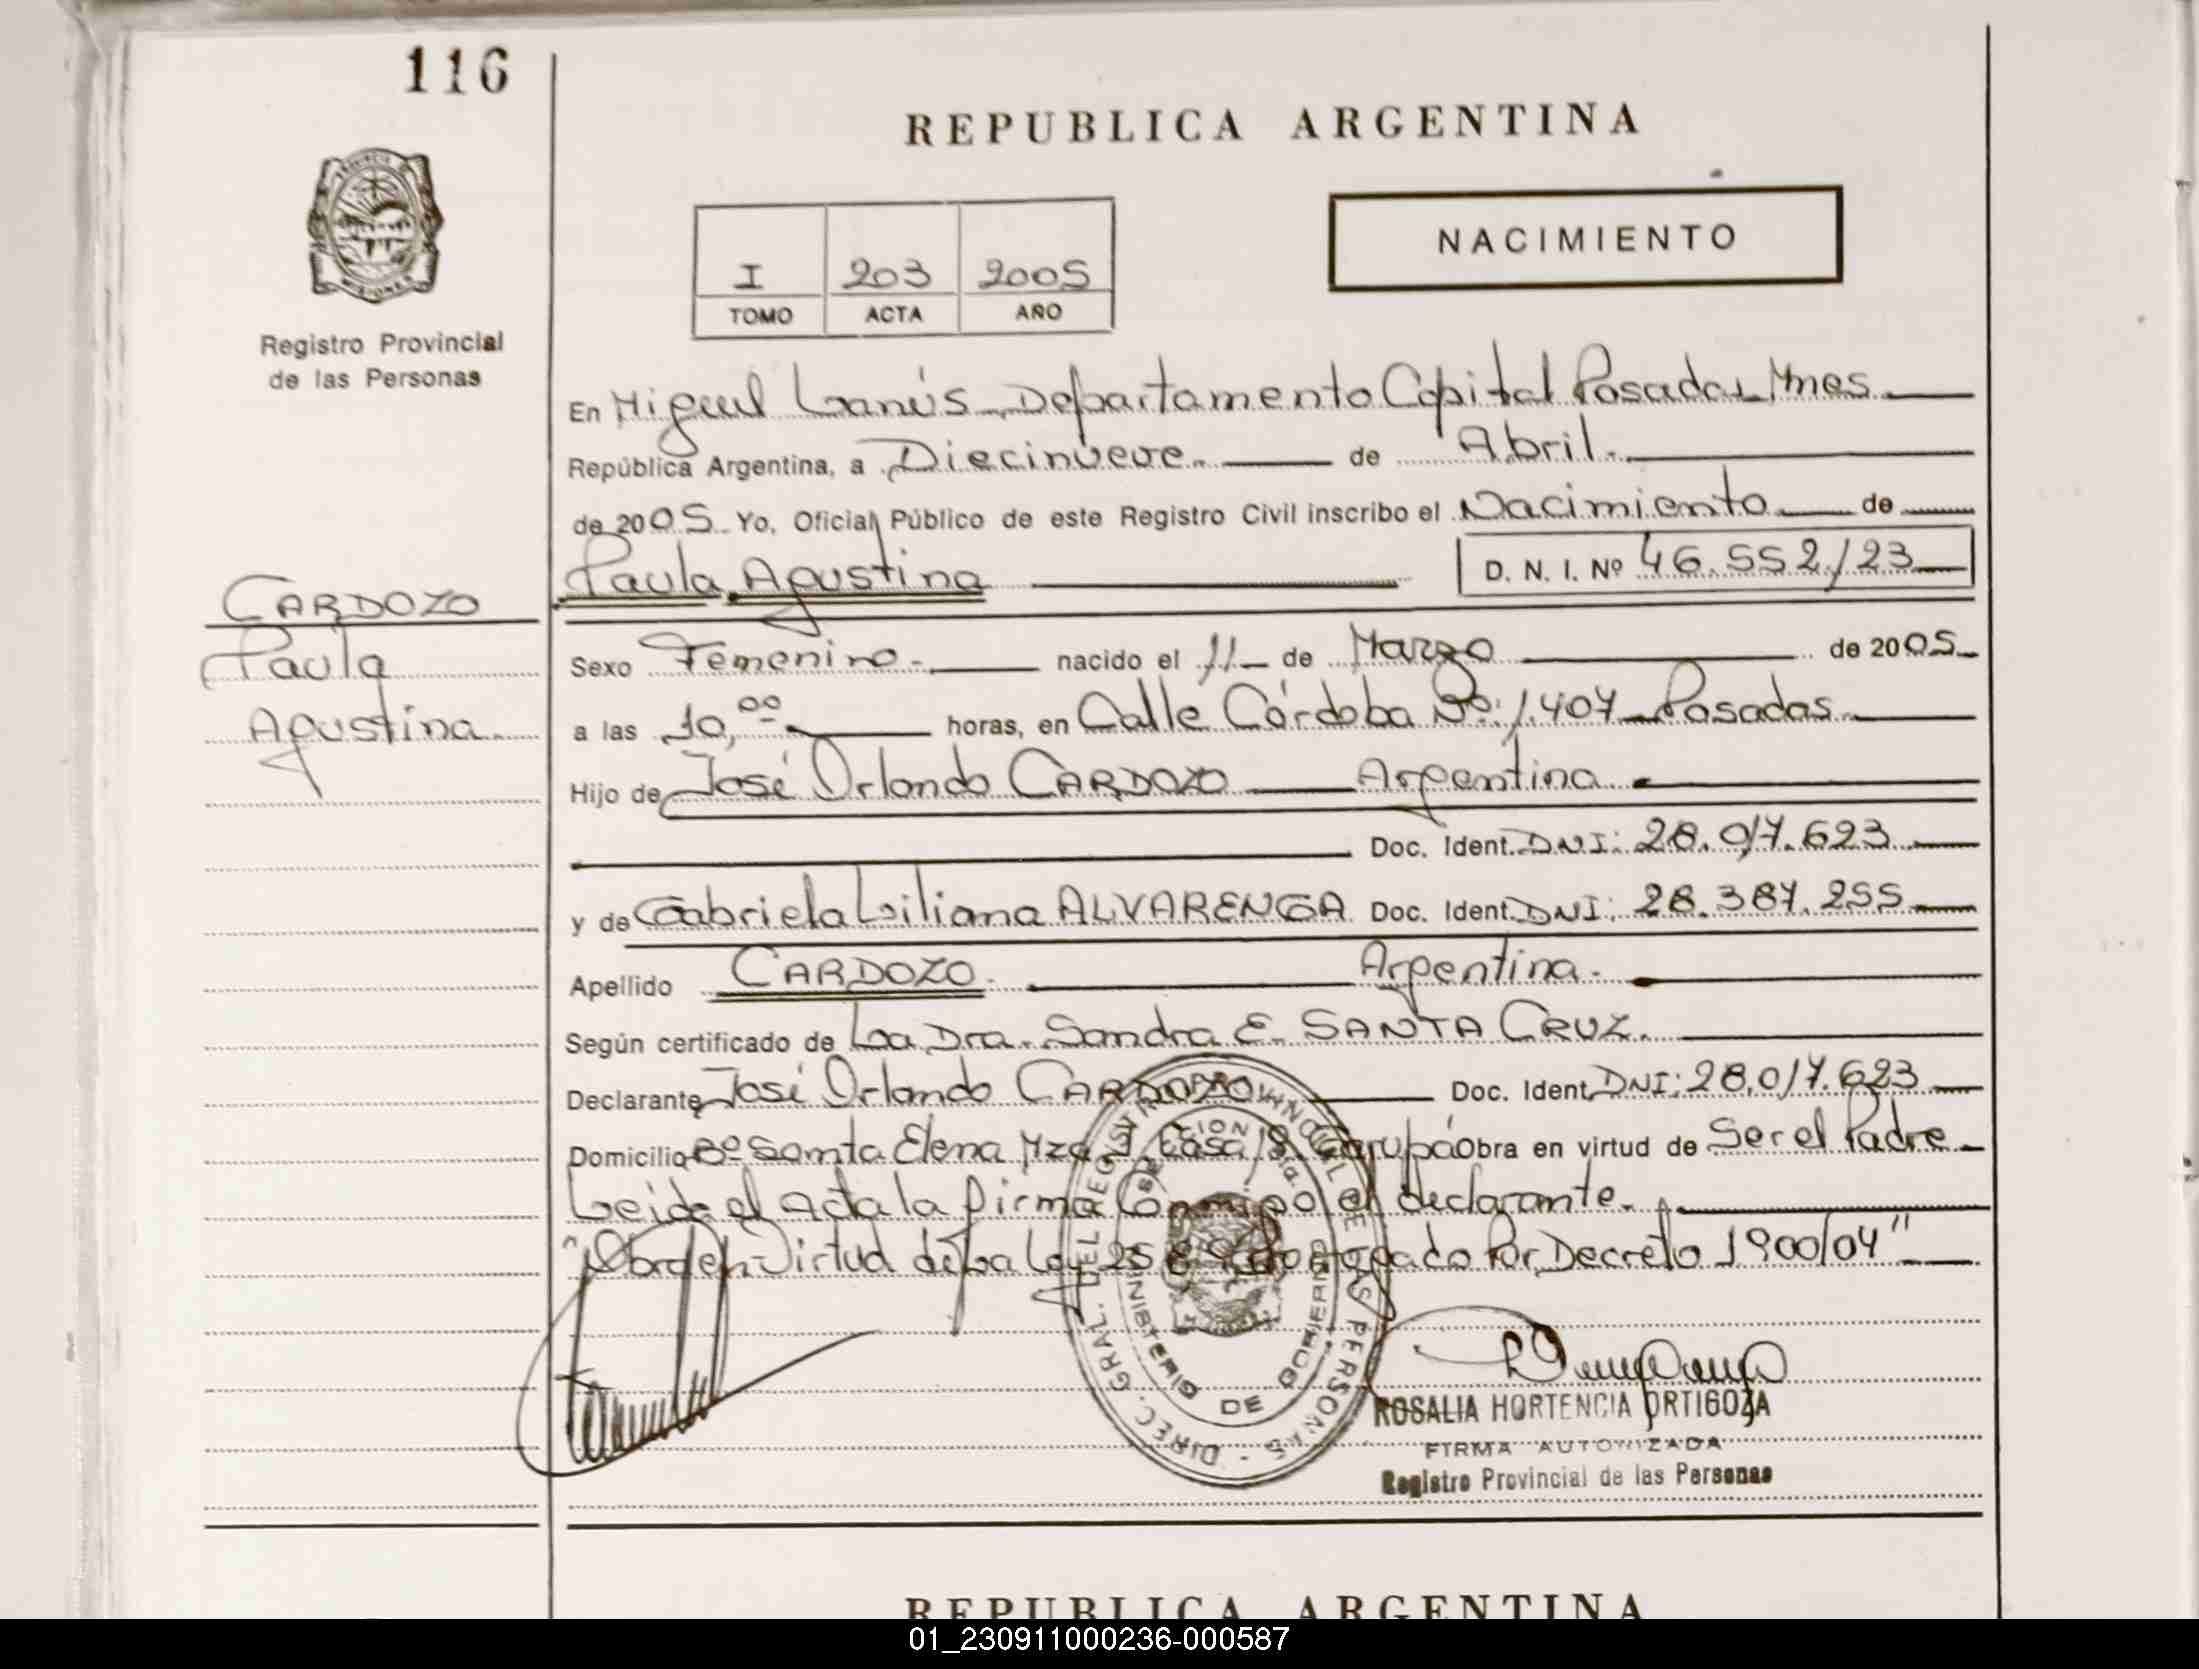 116
REPUBLICA ARGENTINA
NACIMIENTO
I 203 2005
TOMO ACTA AÑO
Registro Provincial
de las Personas
En Miguel Lanús Departamento Capital Posadas Mnes
República Argentina, a Diecinueve de Abril
de 2005 Yo, Oficial Público de este Registro Civil inscribo el Nacimiento de
Paula Agustina D. N. I. Nº 46.552.123
CARDOZO
Paula
Agustina
Sexo Femenino nacido el 11 de Marzo de 2005
a las 10,00 horas, en Calle Córdoba Nº 1.407 Posadas
Hijo de José Orlando CARDOZO Argentina
Doc. Ident. DNI: 28.017.623
y de Gabriela Liliana ALVARENGA Doc. Ident. DNI: 28.387.255
Apellido CARDOZO Argentina
Según certificado de La Dra. Sandra E. SANTA CRUZ
Declarante José Orlando CARDOZO Doc. Ident. DNI: 28.017.623
Domicilio Bº Santa Elena Mza Casa 18 Garupá Obra en virtud de Ser el Padre
Leida el Acta la firma Conmigo el declarante
"Obra en Virtud de La Ley por Decreto 1900/04"
DIREC. GRAL. DEL REGISTRO PROVINCIAL DE LAS PERSONAS
MINISTERIO DE GOBIERNO
ROSALIA HORTENCIA ORTIGOZA
FIRMA AUTORIZADA
Registro Provincial de las Personas
REPUBLICA ARGENTINA
01_230911000236-000587